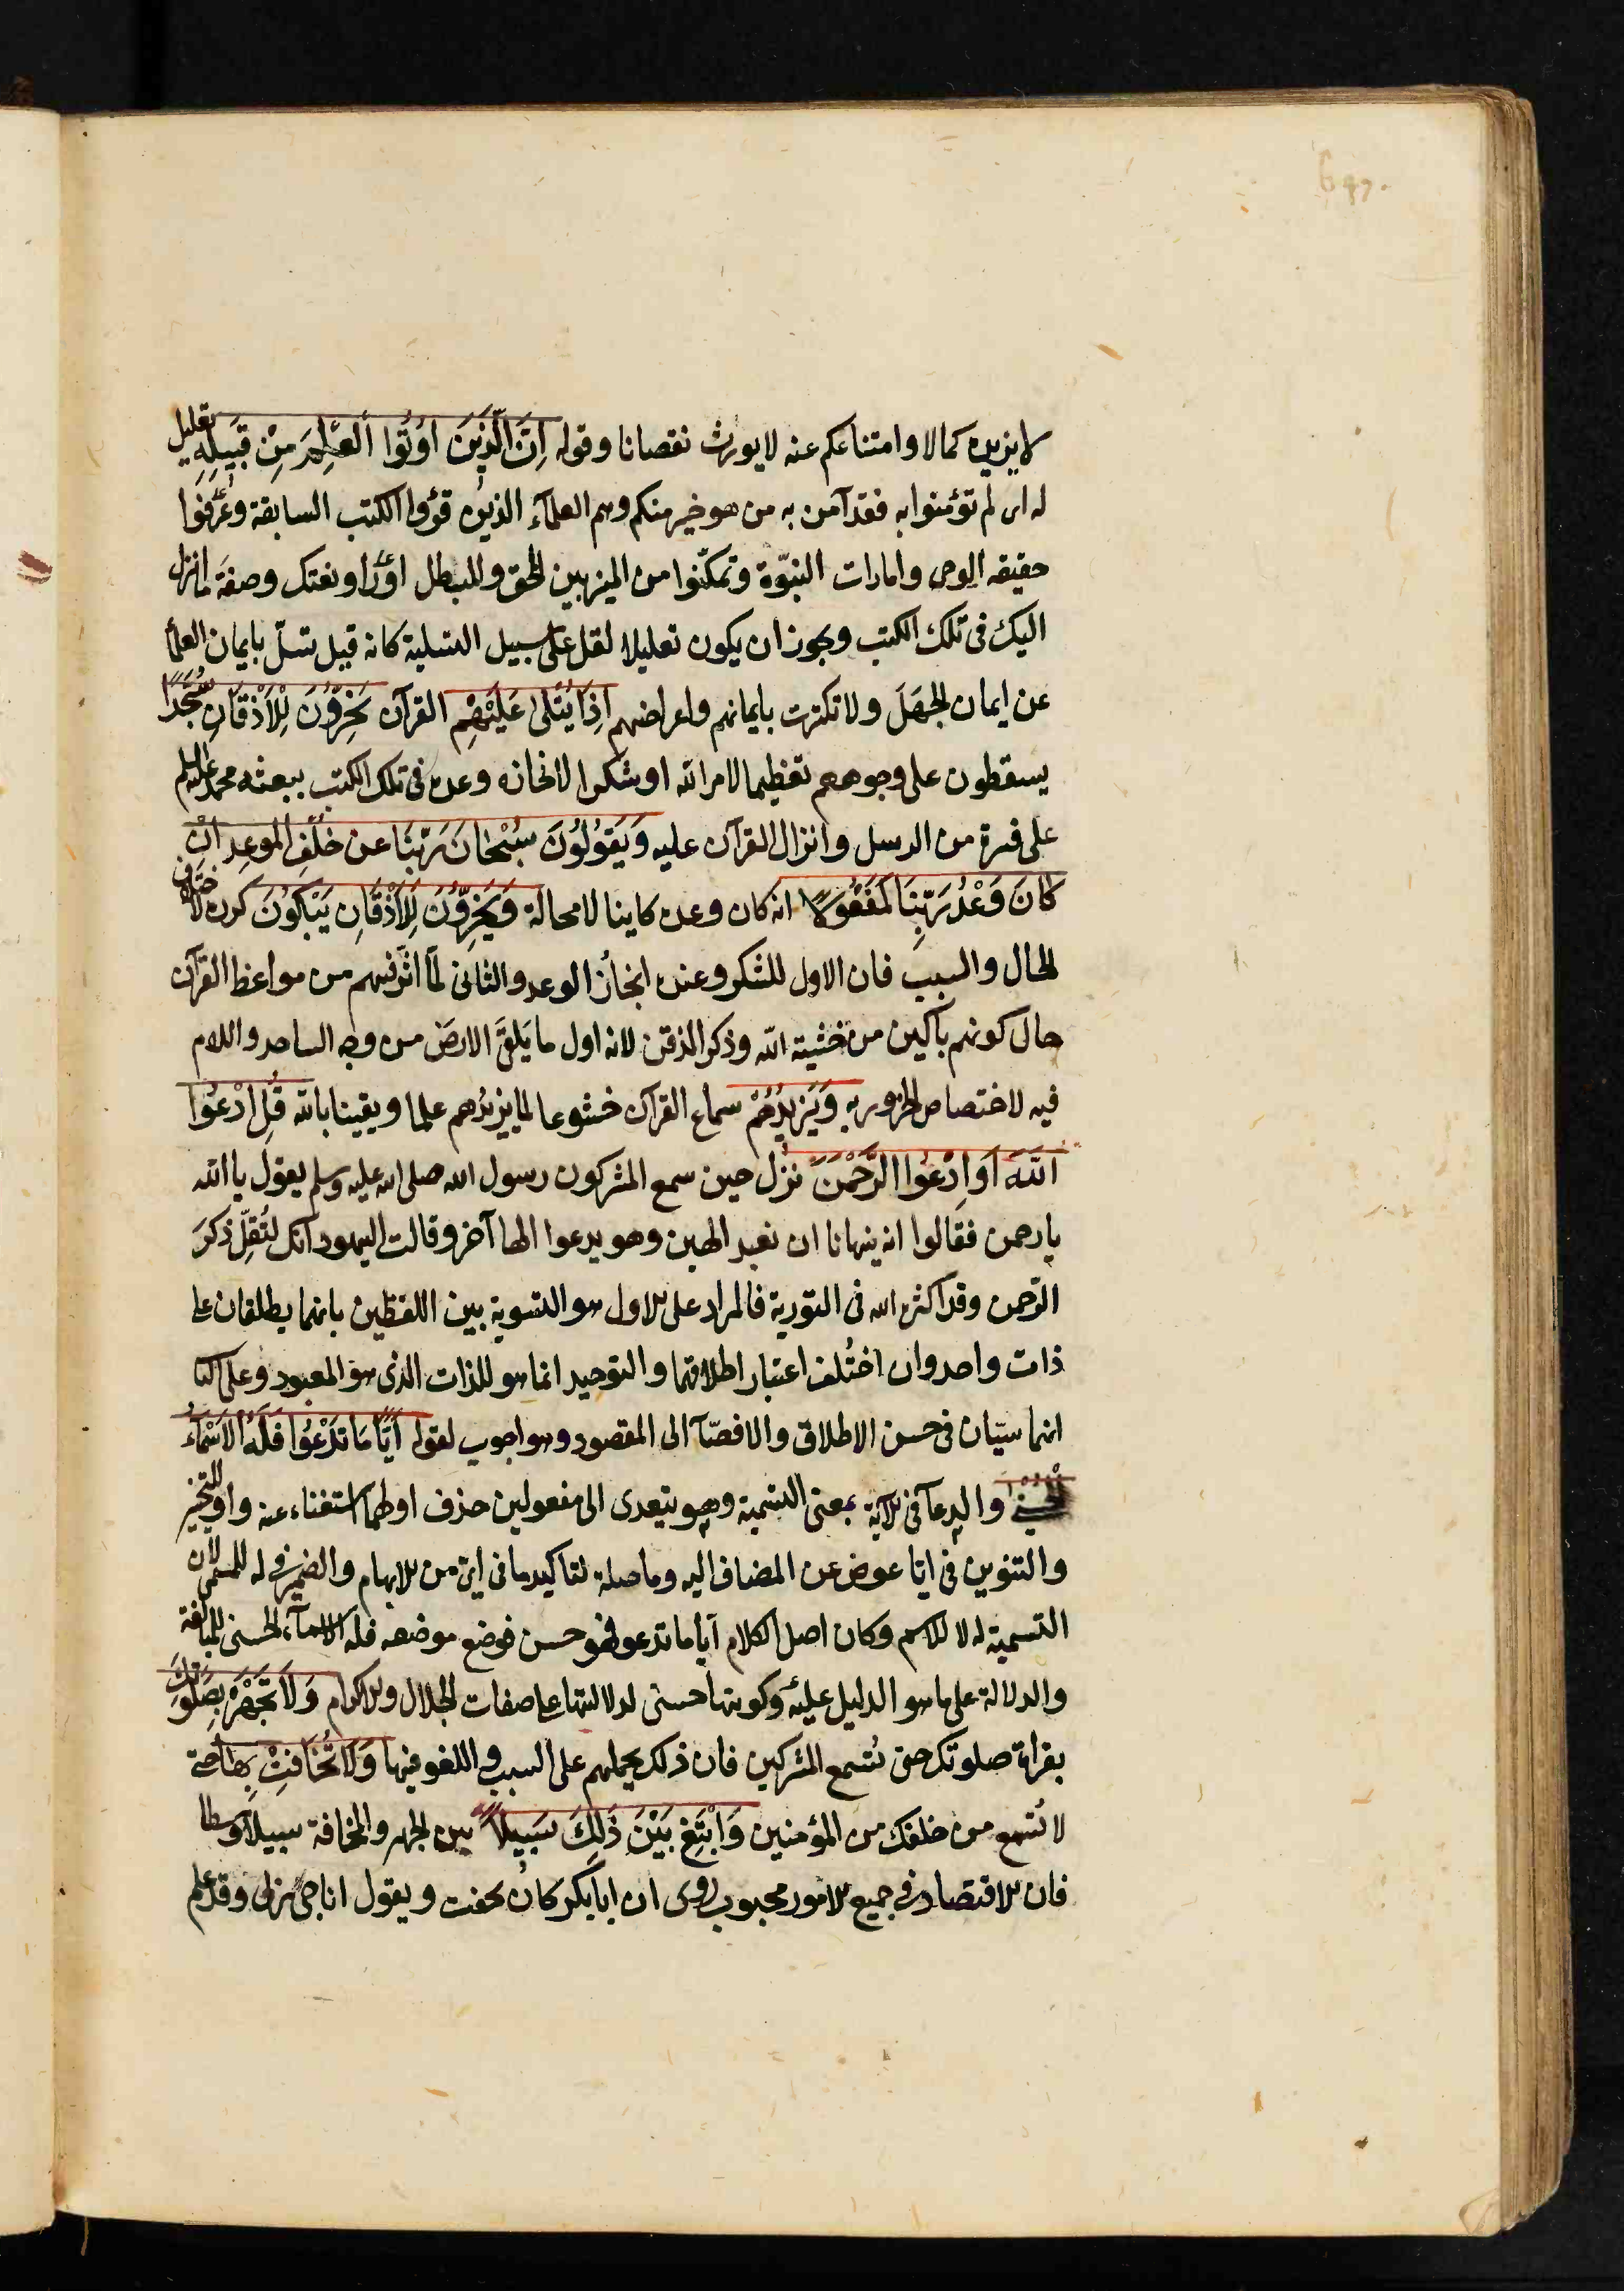 لا يزيده كمالا وامتناعكم عنه لا يورث نقصانا وقوله اِنَّ الَّذِينَ اُوتُوا العِلْمَ مِنْ قَبْلِهِ تعليل
له اى لم تؤمنوا به فقد آمن به من هو خير منكم وهم العلمآء الذين قرؤا الكتب السابقة وعَرَفُوا
حقيقه الوحى وامارات النبوّة وتمكّنوا من الميز بين الحق والمبطل اورَأوا نعتك وصفَة ما انزل
اليك فى تلك الكتب ويجوز ان يكون تعليلا لقل على سبيل التسلية كانه قيل تسلّ بايمان العلما
عن ايمان الجهَلَ ولا تكترث بايمانهم واعراضهم اِذَا يُتْلَى عَلَيْهِم القرآن يَخِرُّونَ لِلْاَذْقَانِ سُجَّدًا
يسقطون على وجوههم تعظيما لامر الله او شكرا لانجازه وعده فى تلك الكتب ببعثه محمد عليه السلم
على فترة من الرسل وانزال القرآن عليه وَيَقُولُونَ سُبْحَانَ رَبِّنَا عن خلف الموعد اِنْ
كَانَ وَعْدُ رَبِّنَا لَمَفْعُولًا انه كان وعده كاينا لا محالة وَيَخِرُّونَ لِلْاَذْقَانِ يَبْكُونَ كرره لاختلاف
الحال والسبب فان الاول للشكر وعند انجاز الوعد والثانى لمّا اثّر فيهم من مواعظ القرآن
حال كونهم باكين من خشية الله وذكر الذقن لانه اول ما يَلقَى الارضَ من وجه الساجد واللام
فيه لاختصاص الخرور به وَيَزِيدُهُمْ سماع القرآن خشوعا لما يزيدُهم علما ويقينا بالله قُلِ ادْعُوا
اللهَ اَوِ ادْعُوا الرَّحْمٰنَ نزل حين سمع المشركون رسول الله صلى الله عليه وسلم يقول يا الله
يا رحمن فقالوا انه ينهانا ان نعبد الهين وهو يدعوا الها آخر وقالت اليهود انك لتُقِلّ ذكرَ
الرّحمن وقد اكثره الله فى التورية فالمراد على الاول هو التسوية بين اللفظين بانهما يطلقان على
ذات واحد وان اختُلف اعتبار اطلاقهما والتوحيد انما هو للذات الذى هو المعبود وعلى الثا
انهما سيّان فى حسن الاطلاق والافضآ الى المقصود وهو اجوب لقوله اَيًّا مَا تَدْعُوا فَلَهُ الاَسْمَاءُ
الحُسْنَى والدعآ فى الآية بمعنى التسمية وهو يتعدى الى مفعولين حذف اولهما استغناء عنه واو للتخير
والتنوين فى ايّا عوض عن المضاف اليه وما صلة لتاكيد ما فى اىّ من الابهام والضمير فى له للمسمى لان
التسمية له لا للاسم وكان اصل الكلام ايّا ما تدعوا فهو حسن فوضع موضعه فله الاسمآء الحسنى للمبالغة
والدلالة على ما هو الدليل عليه وكونها حسنى لدلالتها على صفات الجلال والاكرام وَلَا تَجْهَرْ بِصَلٰوتِكَ
بقراة صلوتك حتى تُسمع المشركين فان ذلك يحملهم على السب واللغو فيها وَلَا تُخَافِتْ بِهَا حتى
لا تُسمع من خلفك من المؤمنين وَابْتَغِ بَيْنَ ذَلِكَ سَبِيلًا بين الجهر والمخافة سبيلا وسطا
فان الاقتصاد فى جميع الامور محبوب روى ان ابا بكر كان يخفت ويقول اناجى ربى وقد علم